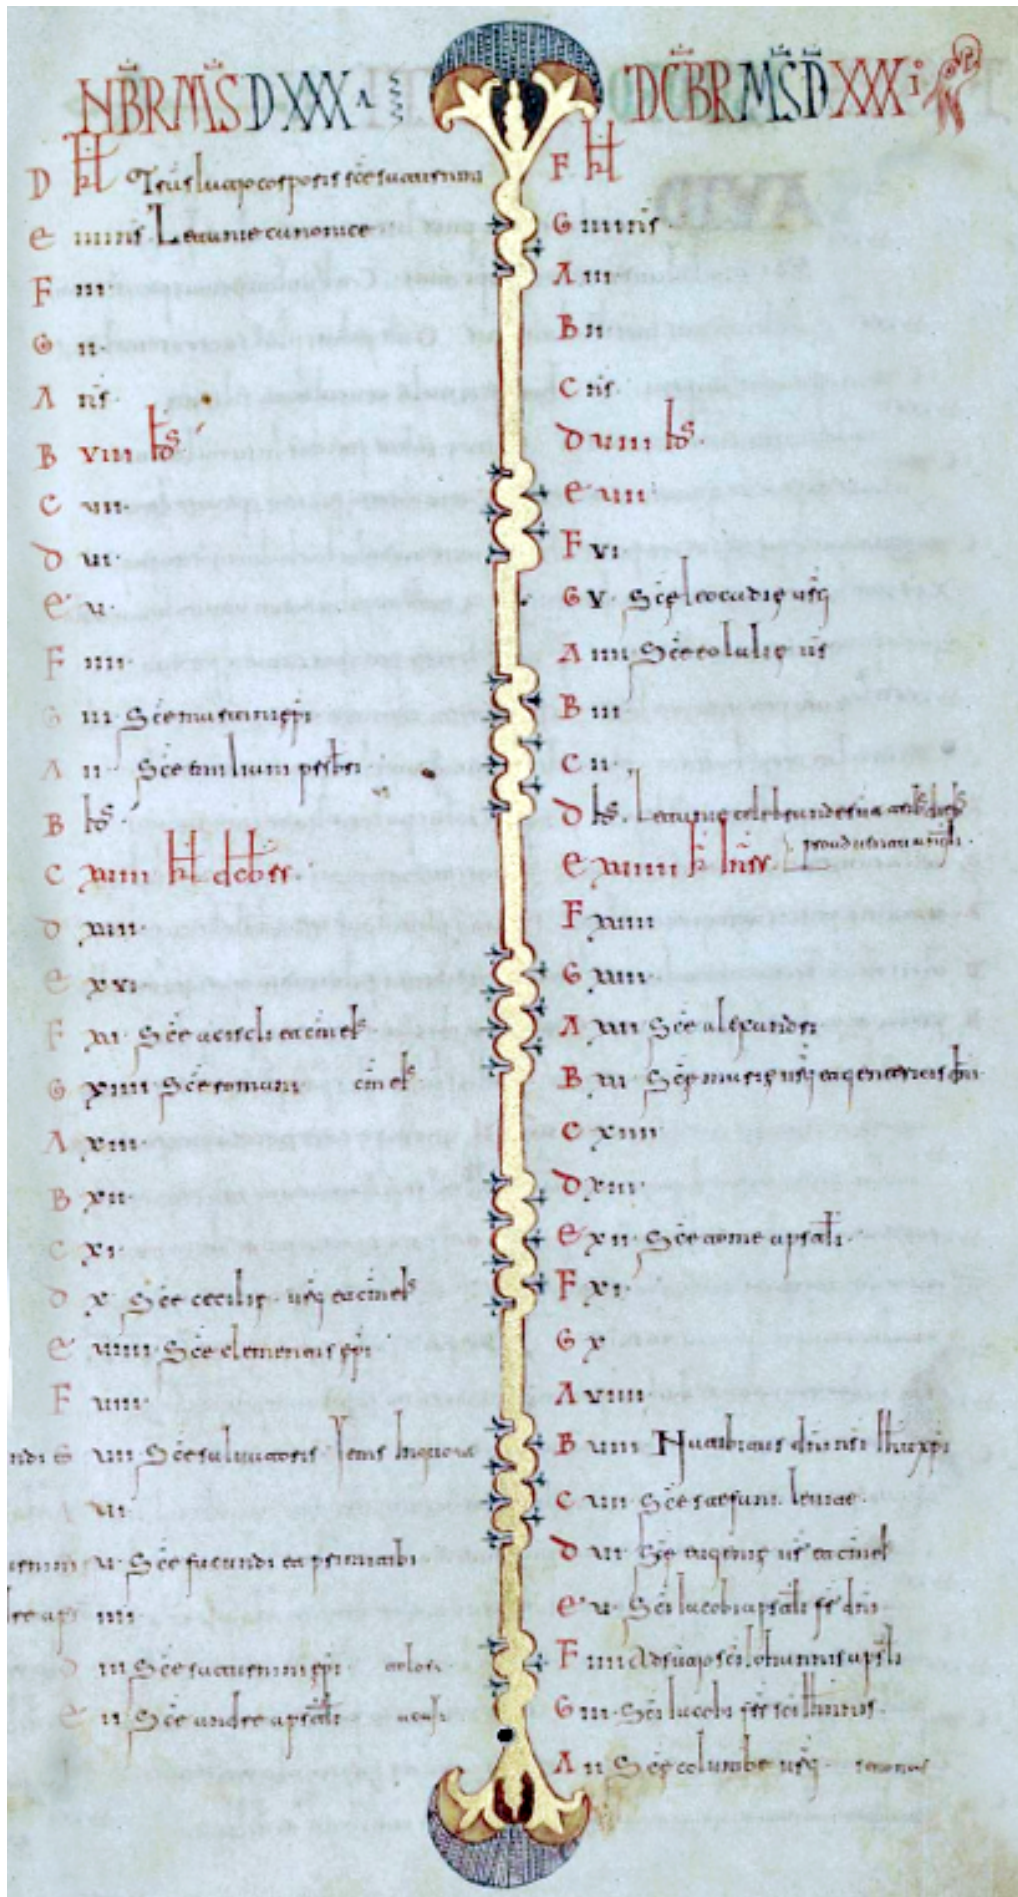 NBRMS D XXX
D Kł Trāslatio corporis sce saturnini
e iiii ns. Letanie canonice
F iii
G ii
A ns
B viii ids
C vii
d vi
e v
F iiii
G iii Sce martini epi
A ii Sce emiliani prsbri
B ids
C xviii kł dcbrs
d xvii
e xvi
F xv Sce aciscli et cmts
G xiiii Sce romani cm ets
A xiii
B xii
C xi
d x Sce cecilie virg et cmts
e viiii Sce clementis epi
F viii
G vii Sce salvatoris
vi
v Sce facundi et primitibi
iiii
d iii Sce saturnini epi
e ii Sce andre apstli
DCBRMSD XXXi
F Kł
G iiii ns
A iii
B ii
C ns
d viii ids
e vii
F vi
G v Sce leocadie virg
A iiii Sce eolalie vir
B iii
C ii
d ids. Letanie celebrande
e xviiii kł inrs
F xviii
G xvii
A xvi Sce alexandri
B xv Sce marie virg et genetricis dni
C xiiii
d xiii
e xii Sce tome apstli
F xi
G x
A viiii
B viii Natibitas dni nsi ihu xpi
C vii Sce stefani
d vi Sce eugenie vir et cmts
e v Sci iacobi apstli frs dni
F iiii Adsumtio sci iohannis apsli
G iii Sci iacobi frs sci iohannis
A ii Sce columbe virg